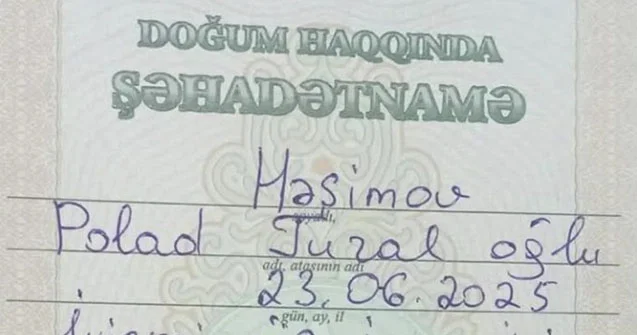 DOĞUM HAQQINDA
ŞƏHADƏTNAMƏ
Həşimov
soyadı,
Polad Tural oğlu
adı, atasının adı
23.06.2025
gün, ay, il